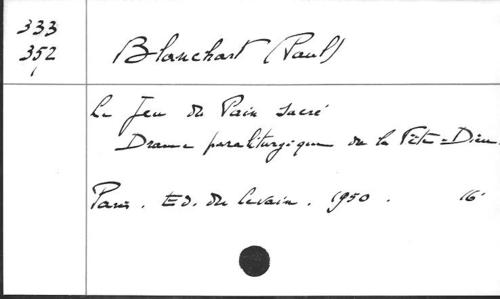 333
352
Blanchart (Paul)
Le Jeu du Pain sacré
Drame paraliturgique de la Fête-Dieu.
Paris. Ed. du levain. 1950. 16°